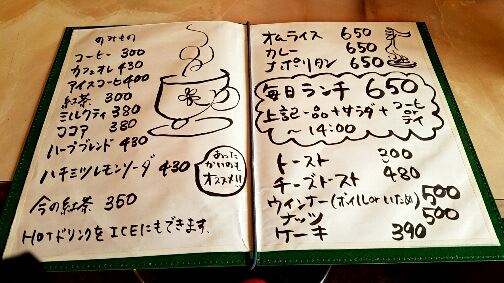 のみもの
コーヒー 300
カフェオレ 430
アイスコーヒー 400
紅茶 300
ミルクティ 380
ココア 380
ハーブブレンド 430
ハチミツレモンソーダ 430
あったかいのもオススメ!!
今の紅茶 350
HOTドリンクをICEにもできます.
オムライス 650
カレー 650
ナポリタン 650
毎日ランチ 650
上記一品+サラダ+コーヒー or ティ
〜14:00
トースト 300
チーズトースト 480
ウインナー(ボイル or いため) 500
ナッツ 500
ケーキ 390